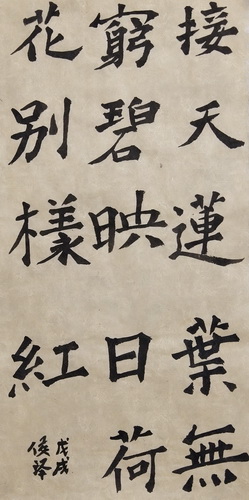 接天蓮葉無
窮碧映日荷
花別樣紅
戊戌
侯峄